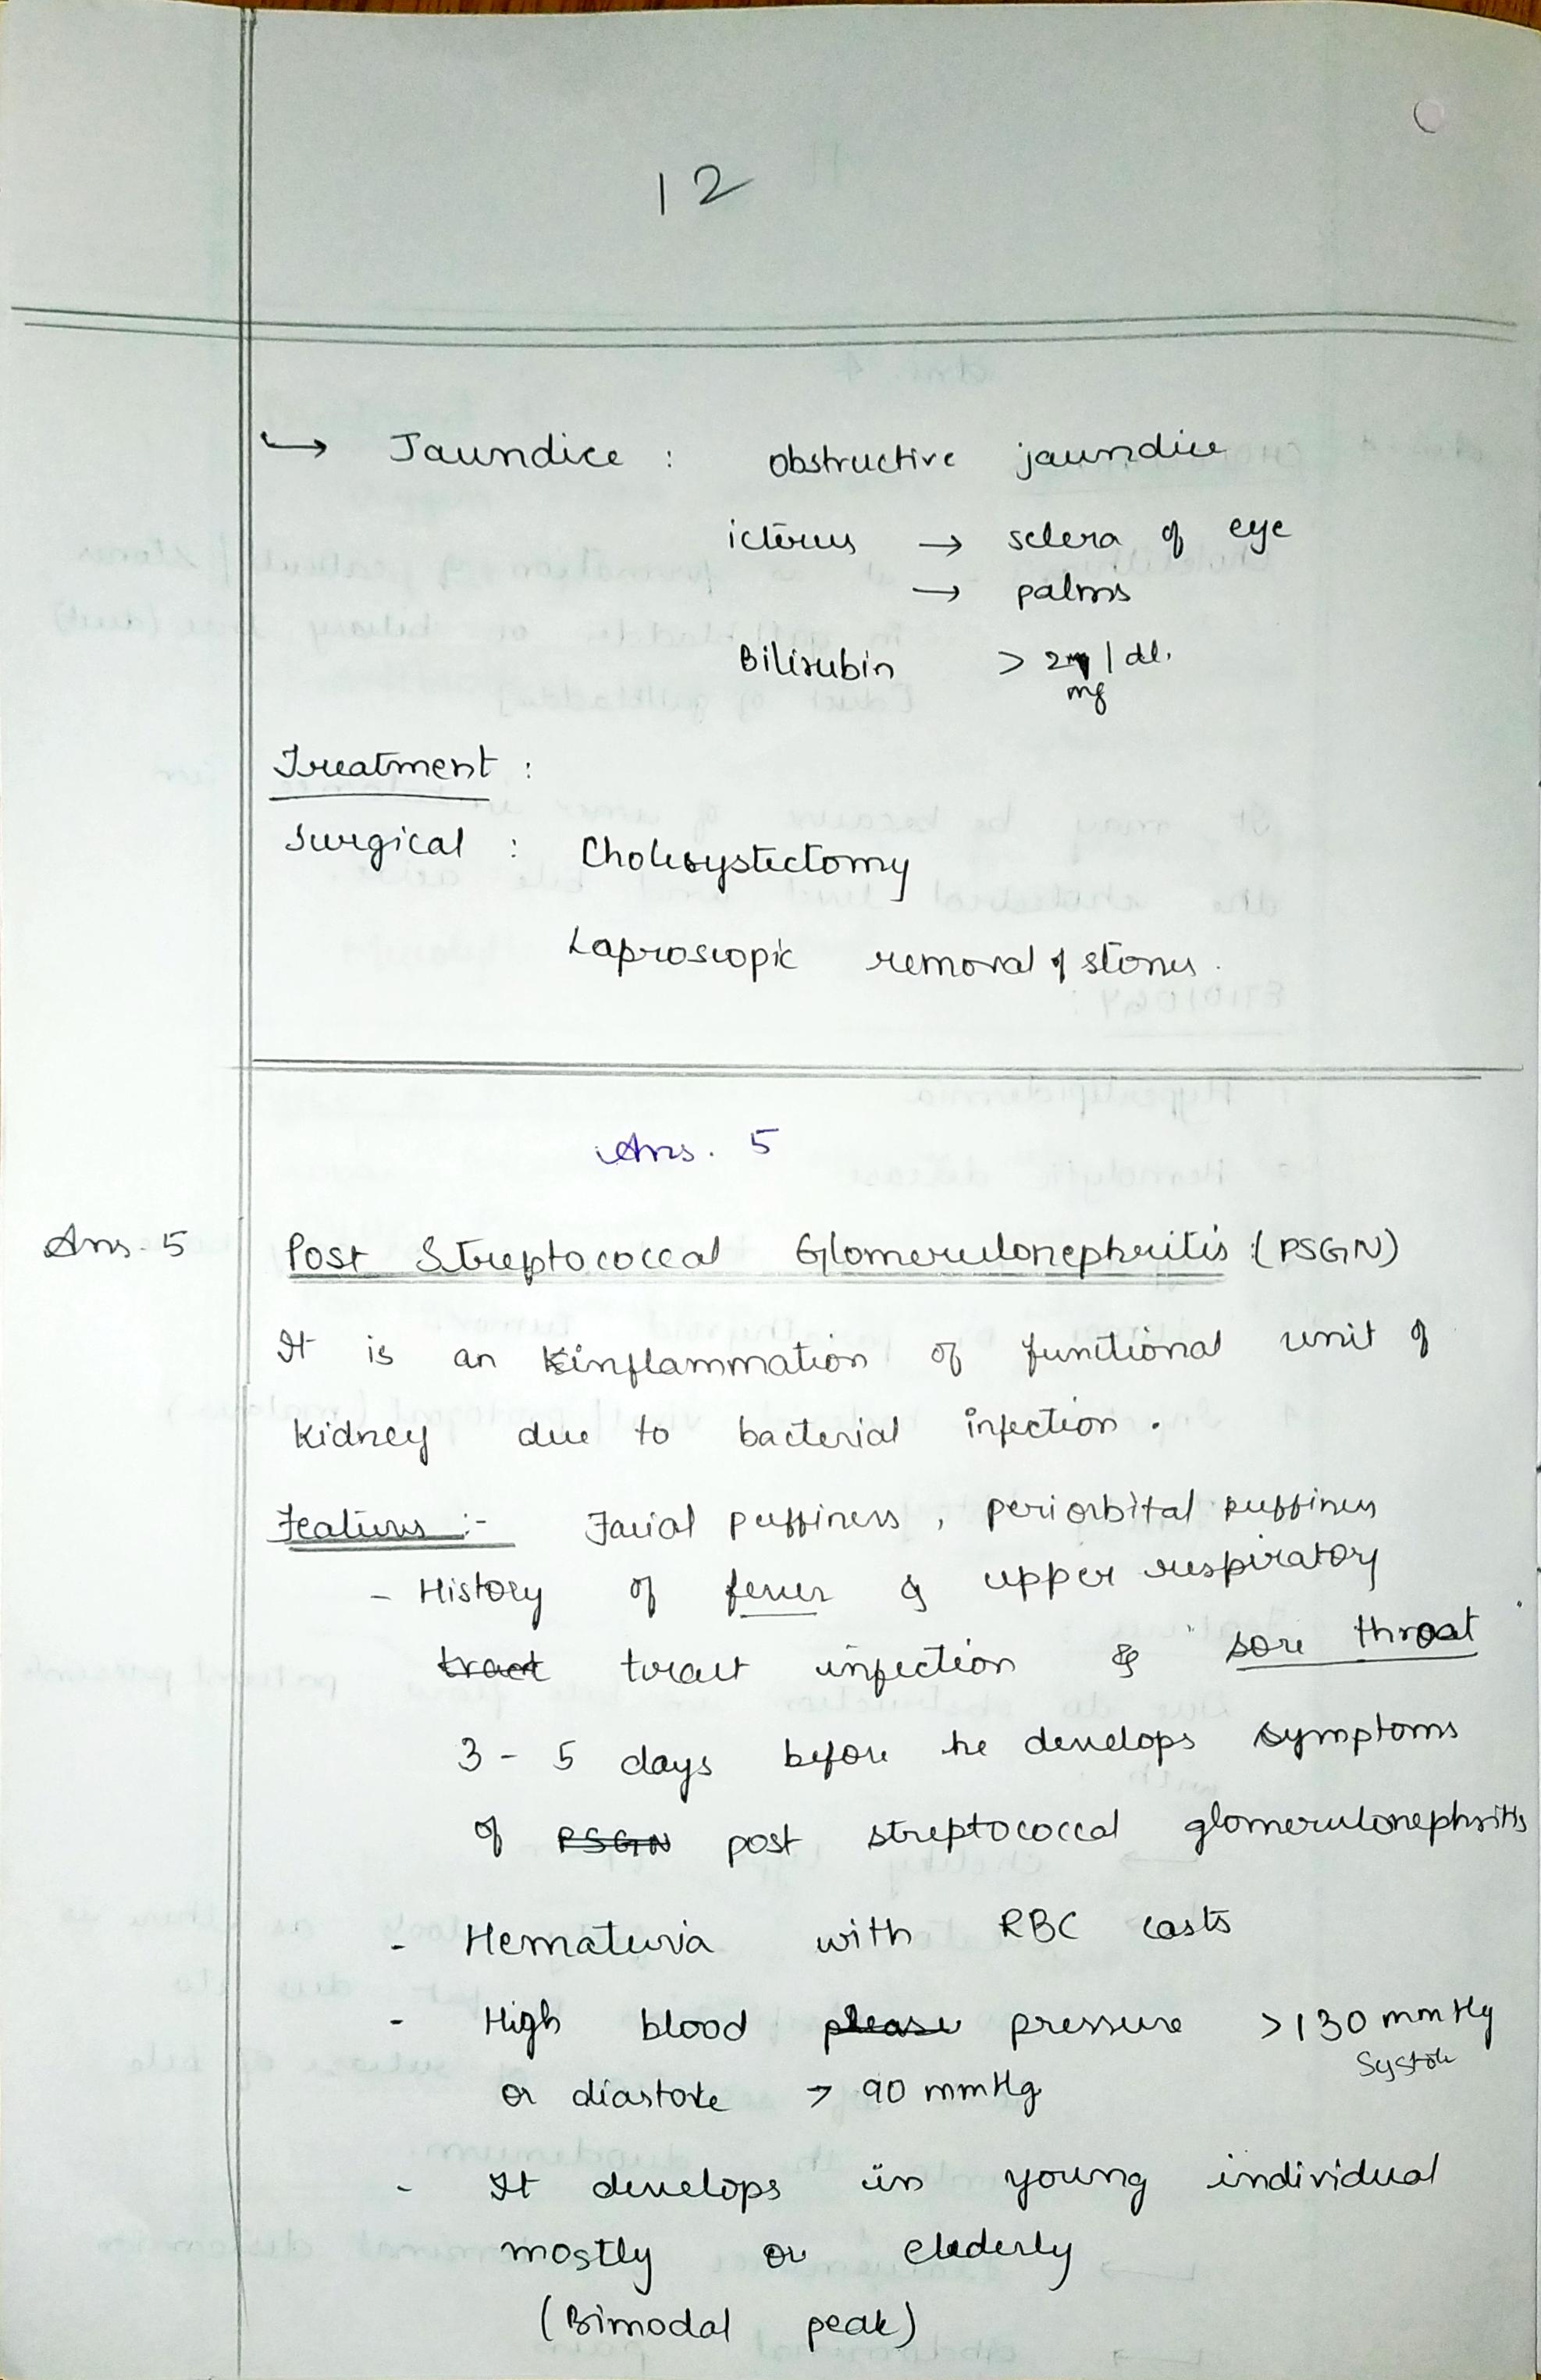 12
↳ Jaundice : obstructive jaundice
icterus → sclera of eye
→ palms
Bilirubin > 2 mg/dl.
Treatment :
Surgical : Cholecystectomy
Laproscopic removal of stones.
Ans. 5
Ans. 5 Post Streptococcal Glomerulonephritis : (PSGN)
It is an inflammation of functional unit of
kidney due to bacterial infection.
Features :- Facial puffiness, periorbital puffiness
- History of fever & upper respiratory
tract tract infection & sore throat
3 - 5 days before he develops symptoms
of PSGN post streptococcal glomerulonephritis
- Hematuria with RBC casts
- High blood please pressure > 130 mmHg
Systole
or diastole > 90 mmHg
- It develops in young individual
mostly or elederly
(Bimodal peak)